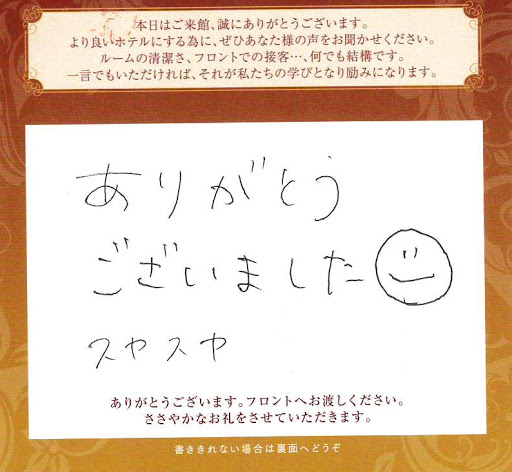 本日はご来館、誠にありがとうございます。
より良いホテルにする為に、ぜひあなた様の声をお聞かせください。
ルームの清潔さ、フロントでの接客…、何でも結構です。
一言でもいただければ、それが私たちの学びとなり励みになります。
ありがとう
ございました
スヤスヤ
ありがとうございます。フロントへお渡しください。
ささやかなお礼をさせていただきます。
書ききれない場合は裏面へどうぞ